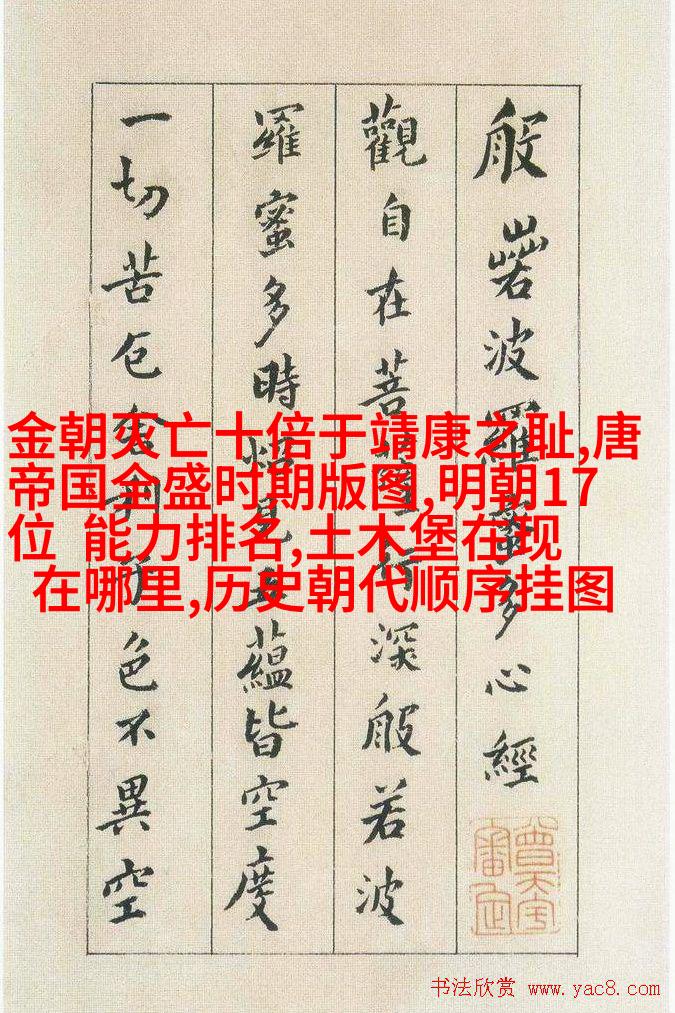 般若波羅蜜多心經
觀自在菩薩行深般若波
羅蜜多時照見五蘊皆空度
一切苦厄舍利子色不異空
金朝灭亡十倍于靖康之耻,唐
帝国全盛时期版图,明朝17
位 能力排名,土木堡在现
在哪里,历史朝代顺序挂图
书法欣赏 www.yac8.com